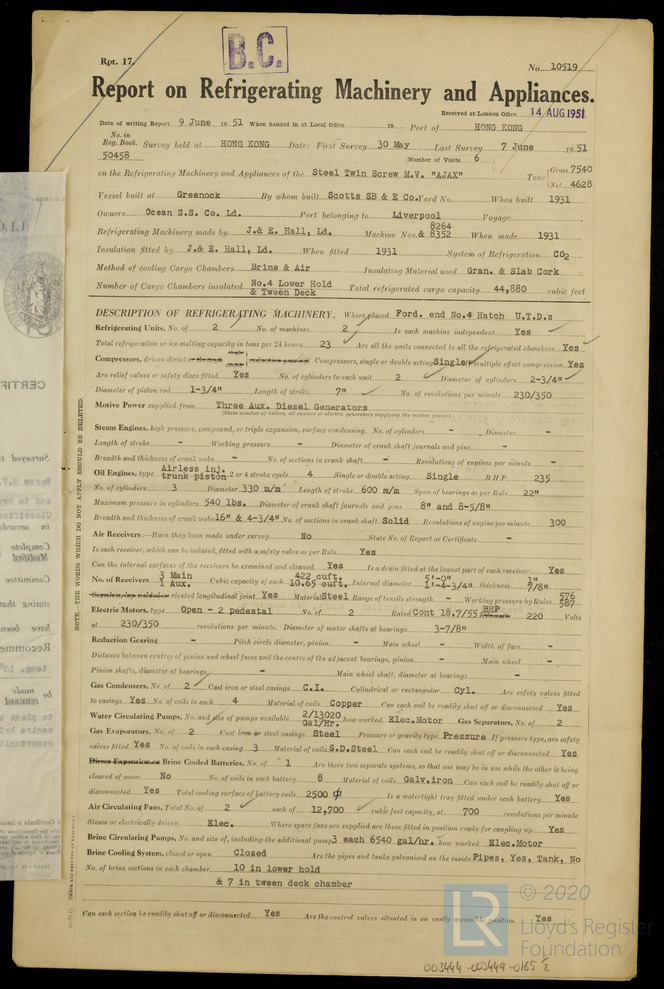 B.C.
Rpt. 17.
No. 10519
Report on Refrigerating Machinery and Appliances.
Received at London Office 14 AUG 1951
Date of writing Report 9 June 19 51 When handed in at Local Office 19 Port of HONG KONG
No. in Reg. Book. Survey held at HONG KONG Date: First Survey 30 May Last Survey 7 June 19 51
50458 (Number of Visits 6
on the Refrigerating Machinery and Appliances of the Steel Twin Screw M.V. "AJAX" Tons Gross 7540 Net 4628
Vessel built at Greenock By whom built Scotts SB & E Co. Yard No. When built 1931
Owners Ocean S.S. Co. Ld. Port belonging to Liverpool Voyage
Refrigerating Machinery made by J.& E. Hall, Ld. Machine Nos. 8264 & 8352 When made 1931
Insulation fitted by J.& E. Hall, Ld. When fitted 1931 System of Refrigeration CO2
Method of cooling Cargo Chambers Brine & Air Insulating Material used Gran. & Slab Cork
Number of Cargo Chambers insulated No.4 Lower Hold & Tween Deck Total refrigerated cargo capacity 44,880 cubic feet
DESCRIPTION OF REFRIGERATING MACHINERY. Where placed Ford. end No.4 Hatch U.T.D.s
Refrigerating Units, No. of 2 No. of machines 2 Is each machine independent Yes
Total refrigeration or ice-melting capacity in tons per 24 hours 23 Are all the units connected to all the refrigerated chambers Yes
Compressors, driven direct or through reduction gearing. Compressors, single or double acting Single If multiple effect compression Yes
Are relief valves or safety discs fitted Yes No. of cylinders to each unit 2 Diameter of cylinders 2-3/4"
Diameter of piston rod 1-3/4" Length of stroke 7" No. of revolutions per minute 230/350
Motive Power supplied from Three Aux. Diesel Generators
(State number of boilers, oil engines or electric generators supplying the motive power)
Steam Engines, high pressure, compound, or triple expansion, surface condensing. No. of cylinders - Diameter -
Length of stroke - Working pressure - Diameter of crank shaft journals and pins -
Breadth and thickness of crank webs - No. of sections in crank shaft - Revolutions of engines per minute -
Oil Engines, type Airless inj. trunk piston 2 or 4 stroke cycle 4 Single or double acting Single B.H.P. 235
No. of cylinders 3 Diameter 330 m/m Length of stroke 600 m/m Span of bearings as per Rule 22"
Maximum pressure in cylinders 540 lbs. Diameter of crank shaft journals and pins 8" and 8-5/8"
Breadth and thickness of crank webs 16" & 4-3/4" No. of sections in crank shaft Solid Revolutions of engine per minute 300
Air Receivers:—Have they been made under survey No State No. of Report or Certificate -
Is each receiver, which can be isolated, fitted with a safety valve as per Rule Yes
Can the internal surfaces of the receivers be examined and cleaned Yes Is a drain fitted at the lowest part of each receiver Yes
No. of Receivers 3 Main 1 Aux. Cubic capacity of each 422 cuft. 10.65 cuft. Internal diameter 5'-0" 1'-4-3/4" thickness 1" 7/8"
Seamless, lap welded or riveted longitudinal joint Yes Material Steel Range of tensile strength - Working pressure by Rules 576 587
Electric Motors, type Open - 2 pedestal No. of 2 Rated Cont 18.7/55 BHP 220 Volts
at 230/350 revolutions per minute. Diameter of motor shafts at bearings 3-7/8"
Reduction Gearing - Pitch circle diameter, pinion - Main wheel - Width of face -
Distance between centres of pinion and wheel faces and the centre of the adjacent bearings, pinion - Main wheel -
Pinion shafts, diameter at bearings - Main wheel shaft, diameter at bearings -
Gas Condensers, No. of 2 Cast iron or steel casings C.I. Cylindrical or rectangular Cyl. Are safety valves fitted
to casings Yes No. of coils in each 4 Material of coils Copper Can each coil be readily shut off or disconnected Yes
Water Circulating Pumps, No. and size of pumps available 2/13020 Gal/Hr. how worked Elec.Motor Gas Separators, No. of 2
Gas Evaporators, No. of 2 Cast iron or steel casings Steel Pressure or gravity type Pressure If pressure type, are safety
valves fitted Yes No. of coils in each casing 3 Material of coils S.D.Steel Can each coil be readily shut off or disconnected Yes
Direct Expansion or Brine Cooled Batteries, No. of 1 Are there two separate systems, so that one may be in use while the other is being
cleared of snow No No. of coils in each battery 8 Material of coils Galv.iron Can each coil be readily shut off or
disconnected Yes Total cooling surface of battery coils 2500 Is a watertight tray fitted under each battery Yes
Air Circulating Fans, Total No. of 2 each of 12,700 cubic feet capacity, at 700 revolutions per minute
Steam or electrically driven Elec. Where spare fans are supplied are these fitted in position ready for coupling up Yes
Brine Circulating Pumps, No. and size of, including the additional pump 3 each 6540 gal/hr. how worked Elec.Motor
Brine Cooling System, closed or open Closed Are the pipes and tanks galvanised on the inside Pipes, Yes, Tank, No
No. of brine sections in each chamber 10 in lower hold
& 7 in tween deck chamber
Can each section be readily shut off or disconnected Yes Are the control valves situated in an easily accessible position Yes
NOTE.—THE WORDS WHICH DO NOT APPLY SHOULD BE DELETED.
LR
© 2020
Lloyd's Register
Foundation
003444-003449-0165 1/2